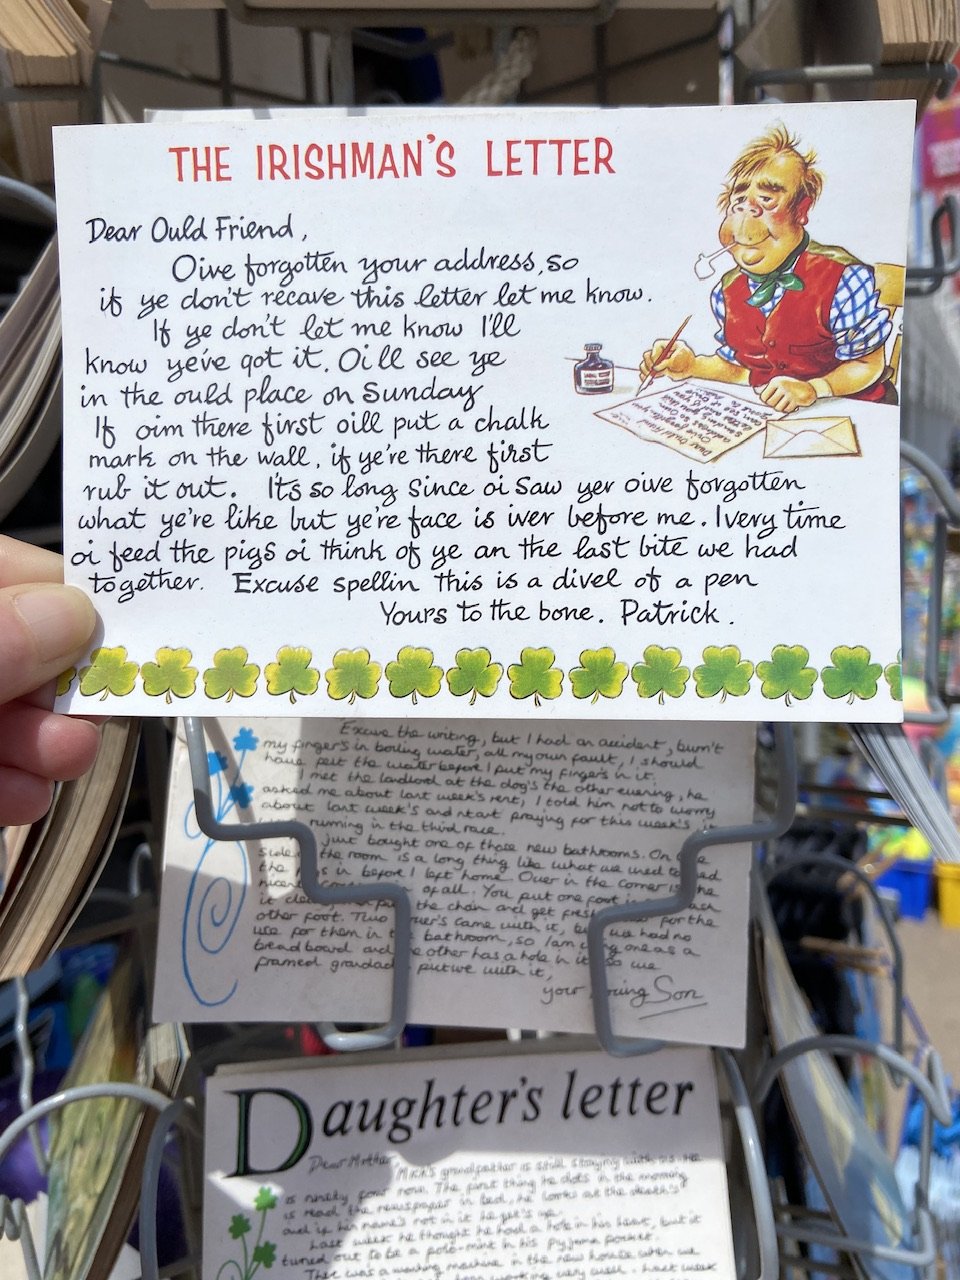 THE IRISHMAN'S LETTER
Dear Ould Friend,
Oive forgotten your address, so
if ye don't recave this letter let me know.
If ye don't let me know I'll
know ye've got it. Oi'll see ye
in the ould place on Sunday
If oim there first oill put a chalk
mark on the wall, if ye're there first
rub it out. It's so long Since oi Saw yer oive forgotten
what ye're like but ye're face is iver before me. Ivery time
oi feed the pigs oi think of ye an the last bite we had
together. Excuse spellin this is a divel of a pen
Yours to the bone. Patrick.
Excuse the writing, but I had an accident, burn't
my finger's in boiling water, all my own fault, I should
have felt the water before I put my finger's in it.
I met the landlord at the dog's the other evening, he
asked me about last week's rent, I told him not to worry
about last week's and start praying for this week's, it
running in the third race.
just bought one of those new bathrooms. On
side of the room is a long thing like what we used to
the pigs in before I left home. Over in the corner is the
of all. You put one foot in
the chain and get fresh for the
other foot. Two came with it, but we had no
use for them in the bathroom, so I am using one as a
bread board and the other has a hole in it so we
framed grandad put we with it,
your loving Son
Daughter's letter
Dear Mother, Mick's grandfather is still staying with us. He
is ninety four now. The first thing he does in the morning
is read the newspaper in bed, he looks at the death's
and if his name's not in it he get's up.
Last week he thought he had a hole in his heart, but it
turned out to be a polo-mint in his pyjama pocket.
There was a washing machine in the new house when we
working very well. last week